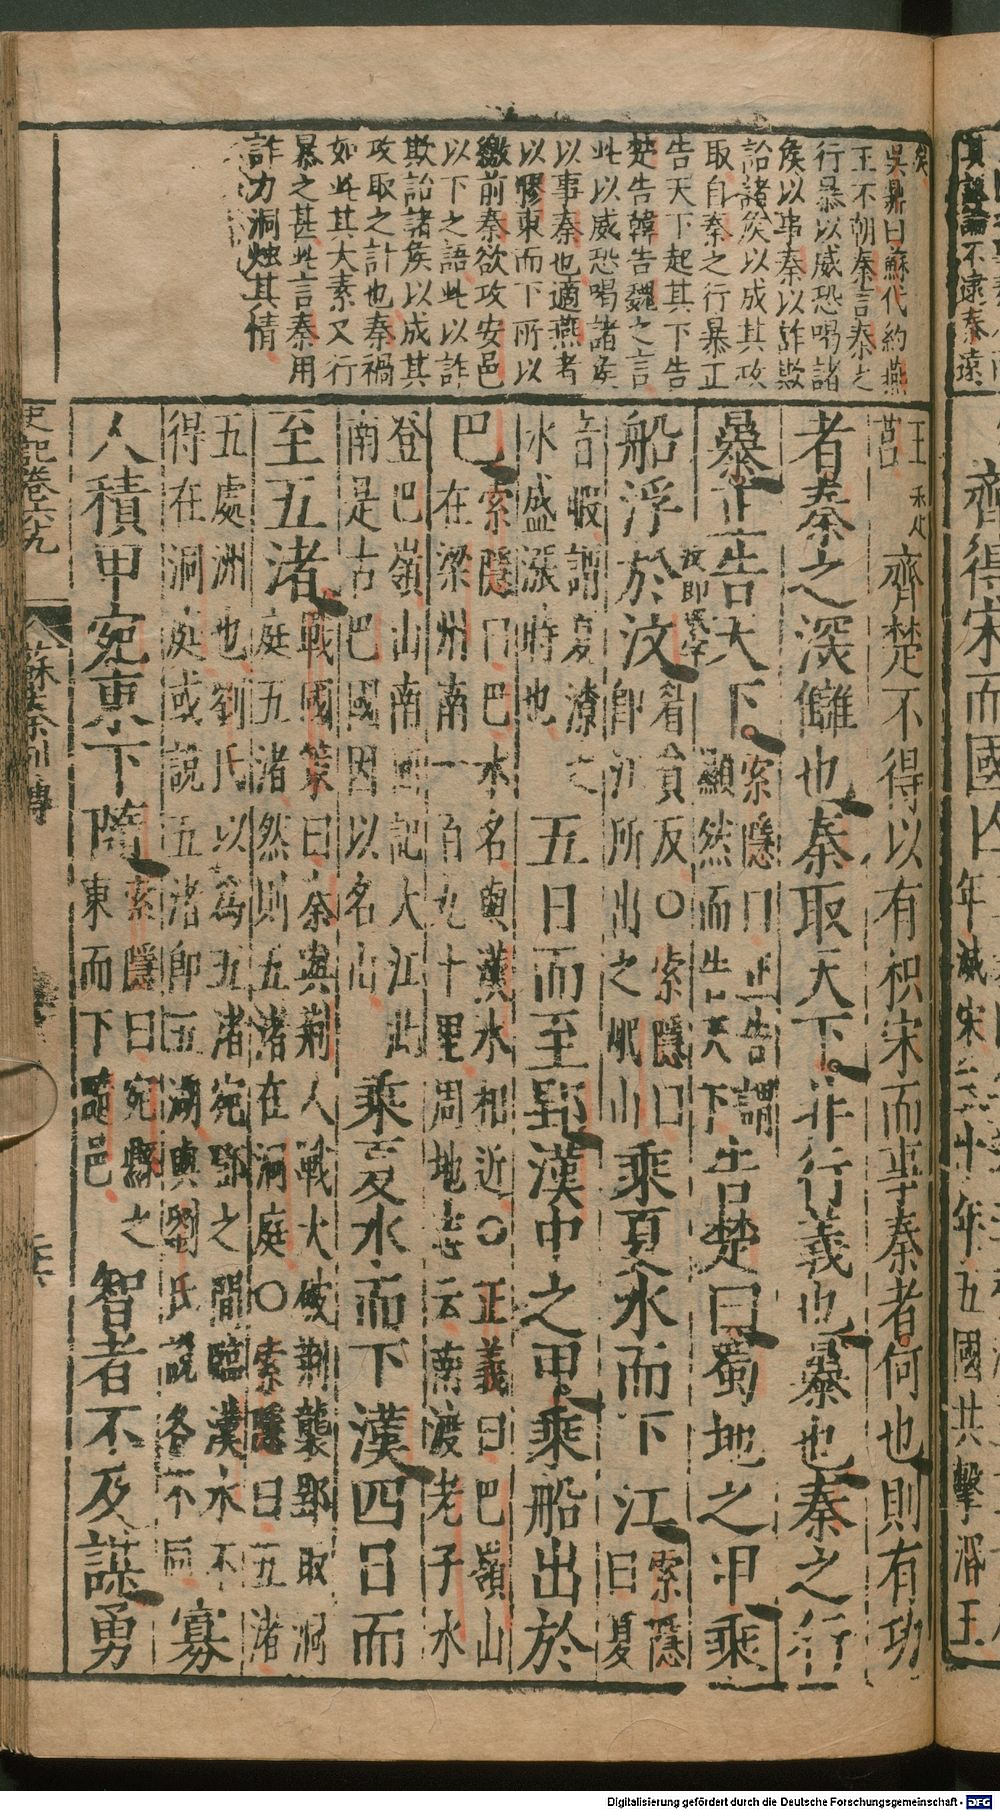 矣
吳鼎曰蘇代約燕
王不朝秦言秦之
行暴以威恐喝諸
侯以事秦以詐欺
詒諸侯以成其攻
取自秦之行暴正
告天下起其下告
楚告韓告魏之言
此以威恐喝諸侯
以事秦也適燕者
以膠東而下所以
繳前秦欲攻安邑
以下之語此以詐
欺詒諸侯以成其
攻取之計也秦禍
如此其大秦又行
暴之甚此言秦用
詐力洞燭其情
王
莒
齊楚不得以有枳宋而事秦者何也則有功
者秦之深讎也秦取天下非行義也暴也秦之行
暴正告天下索隱曰正告謂
顯然而告天下告楚曰蜀地之甲乘
船浮於汶眉貧反○索隱曰
即江所出之岷山乘夏水而下江索隱
曰夏
音暇謂夏潦之
水盛漲時也五日而至郢漢中之甲乘船出於
巴索隱曰巴水名與漢水相近○正義曰巴嶺山
在梁州南一百九十里周地志云南渡老子水
登巴嶺山南回記大江此
南是古巴國因以名山乘夏水而下漢四日而
至五渚戰國策曰秦與荆人戰大破荆襲郢取洞
庭五渚然則五渚在洞庭○索隱曰五渚
五處洲也劉氏以爲五渚宛鄧之間臨漢水不
得在洞庭或說五渚即五湖與劉氏說各不同寡
人積甲宛東下隨索隱曰宛縣之
東而下隨邑智者不及謀勇
史記卷六九
蘇秦列傳
齊得宋而國亡
年滅宋三十年五國共擊湣王
Digitalisierung gefördert durch die Deutsche Forschungsgemeinschaft - DFG